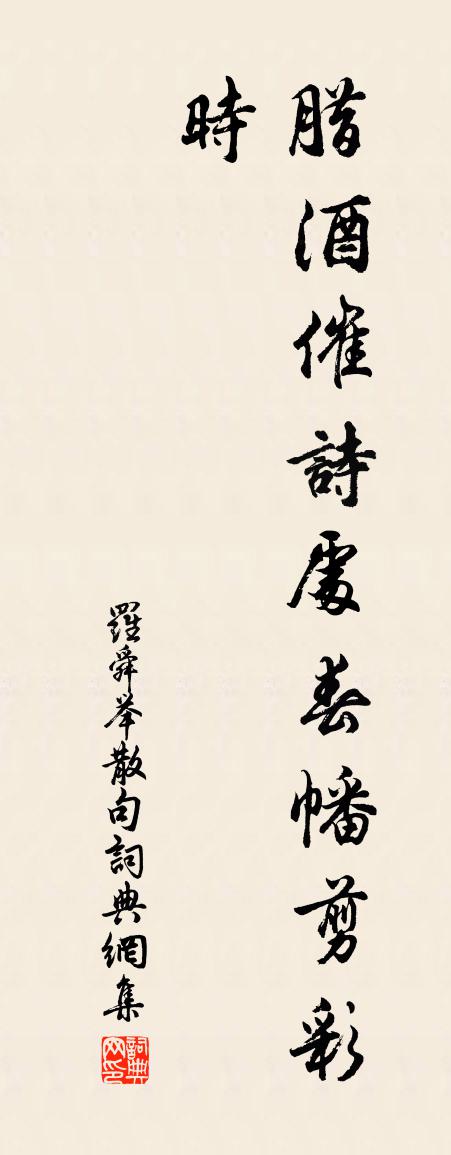 腊酒催詩處春幡剪彩
時
羅舜举散句詞典網集
詞典网印